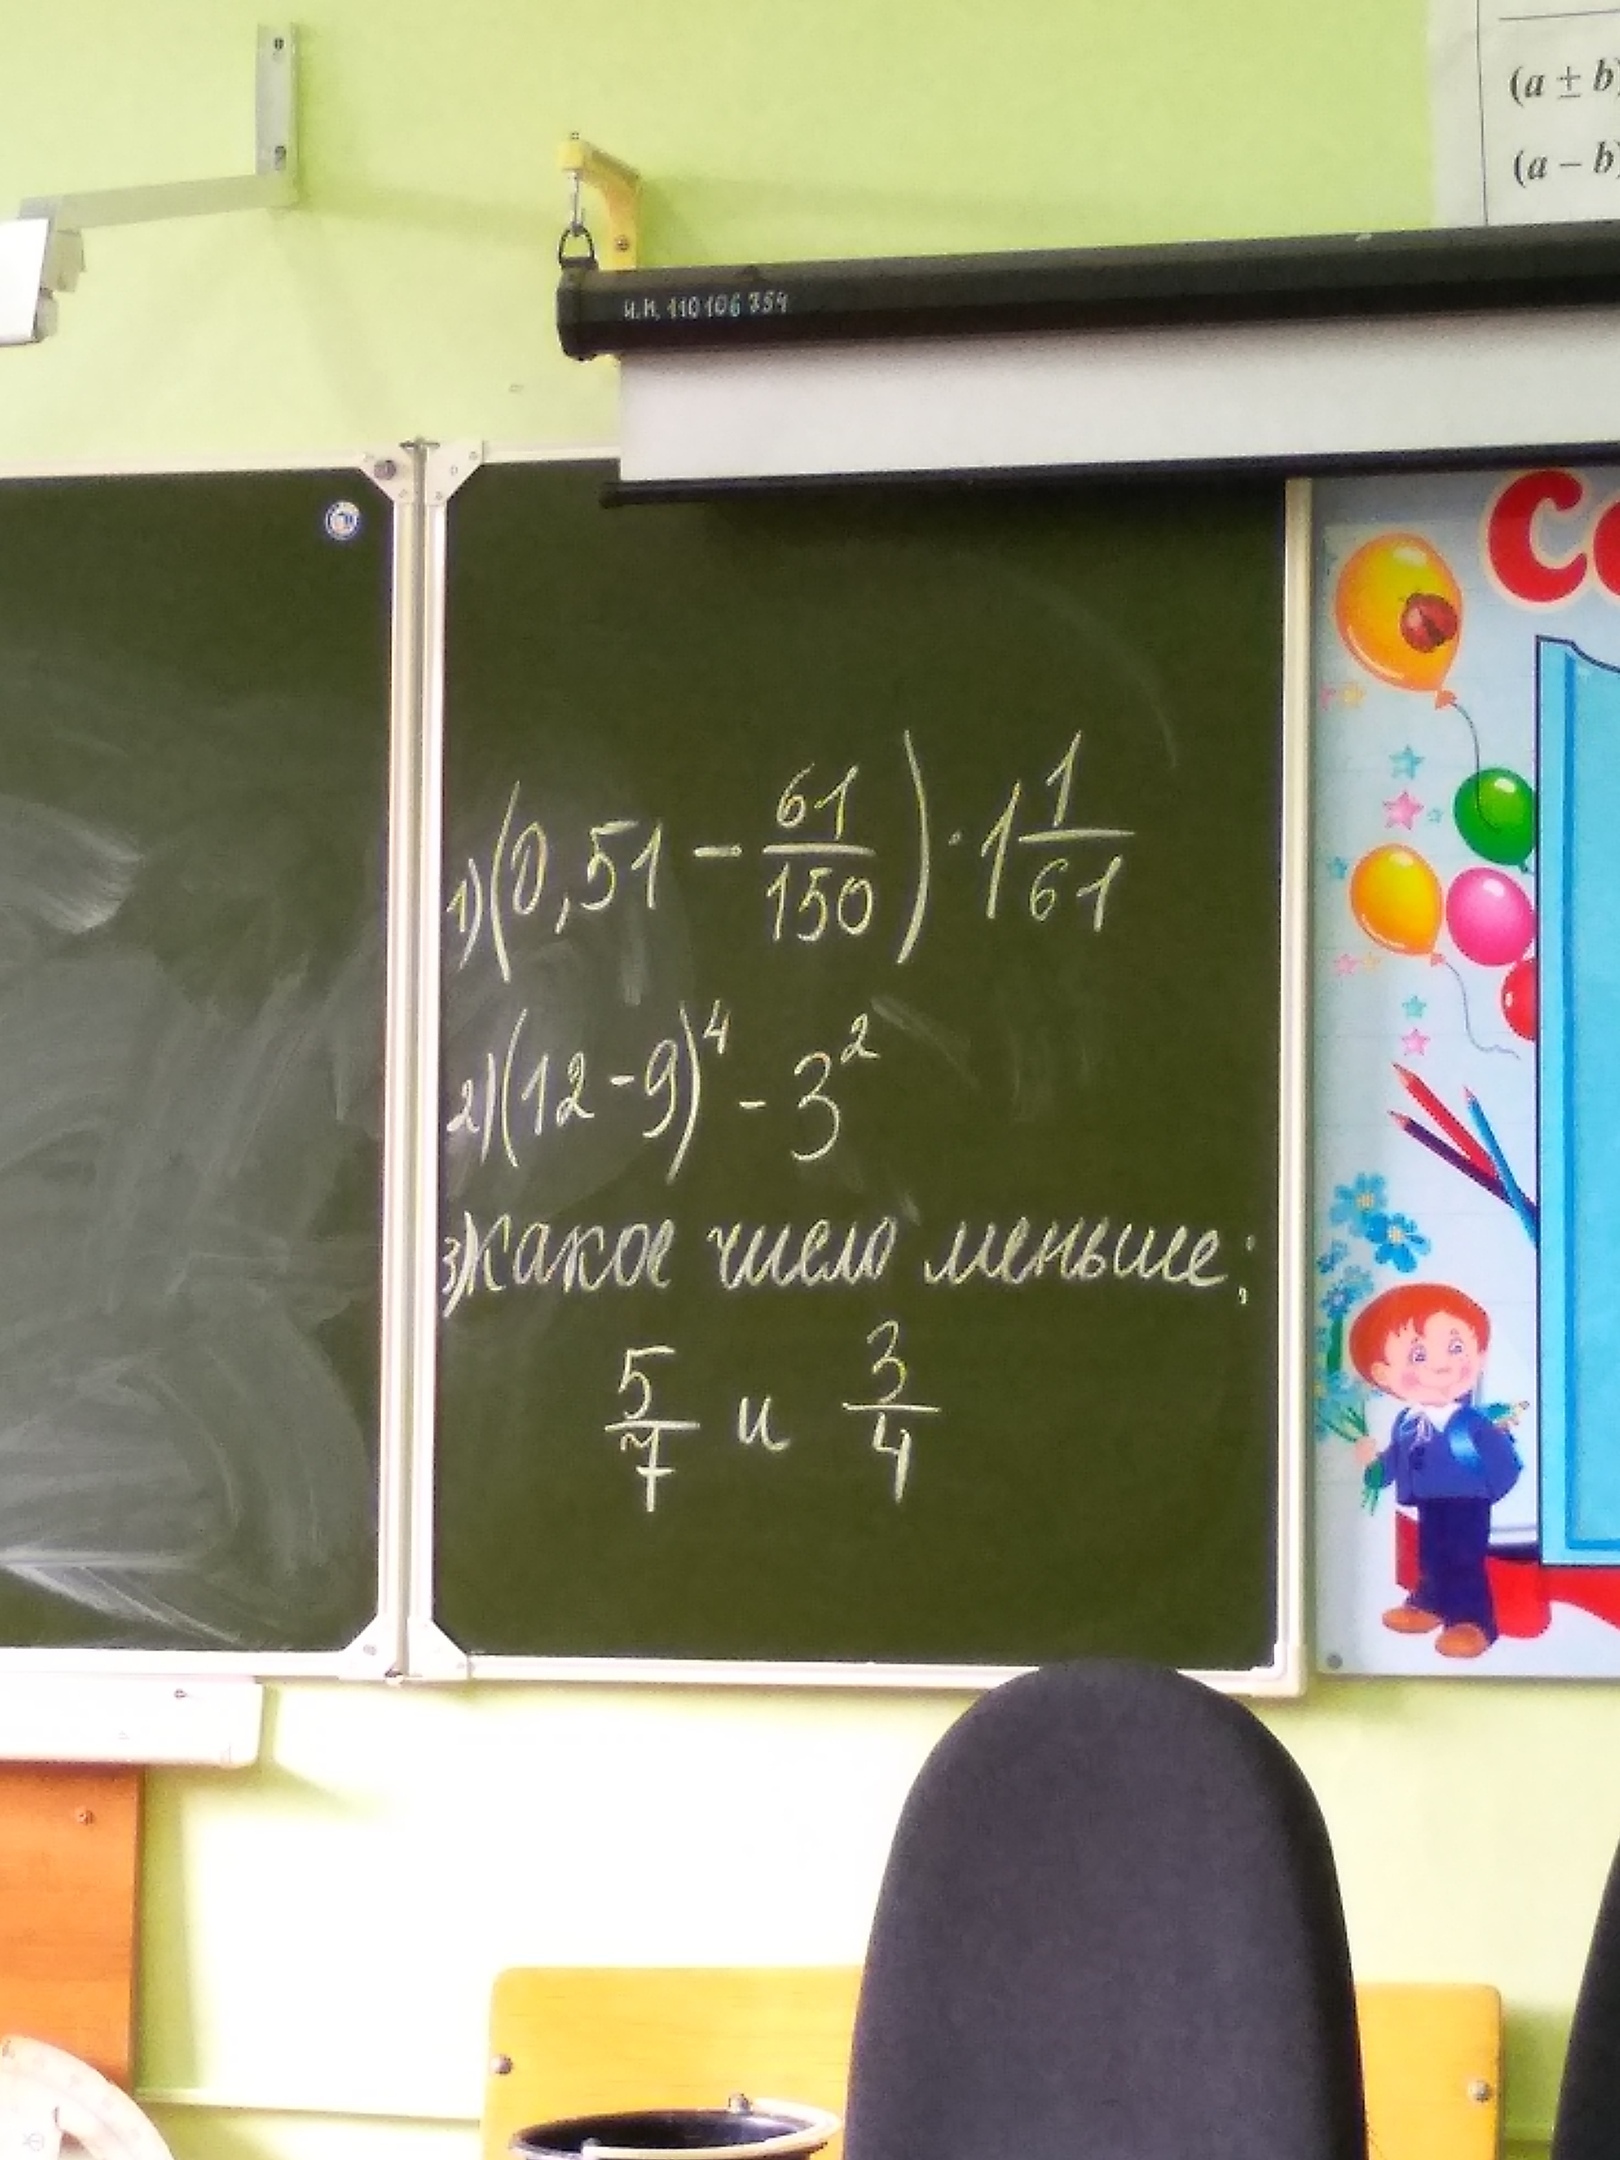 (a ± b)
(a − b)
И.Н. 110106354
Со
1) (0,51 − 61/150) · 1 1/61
2) (12 − 9)⁴ − 3²
3) Какое число меньше:
5/7 и 3/4